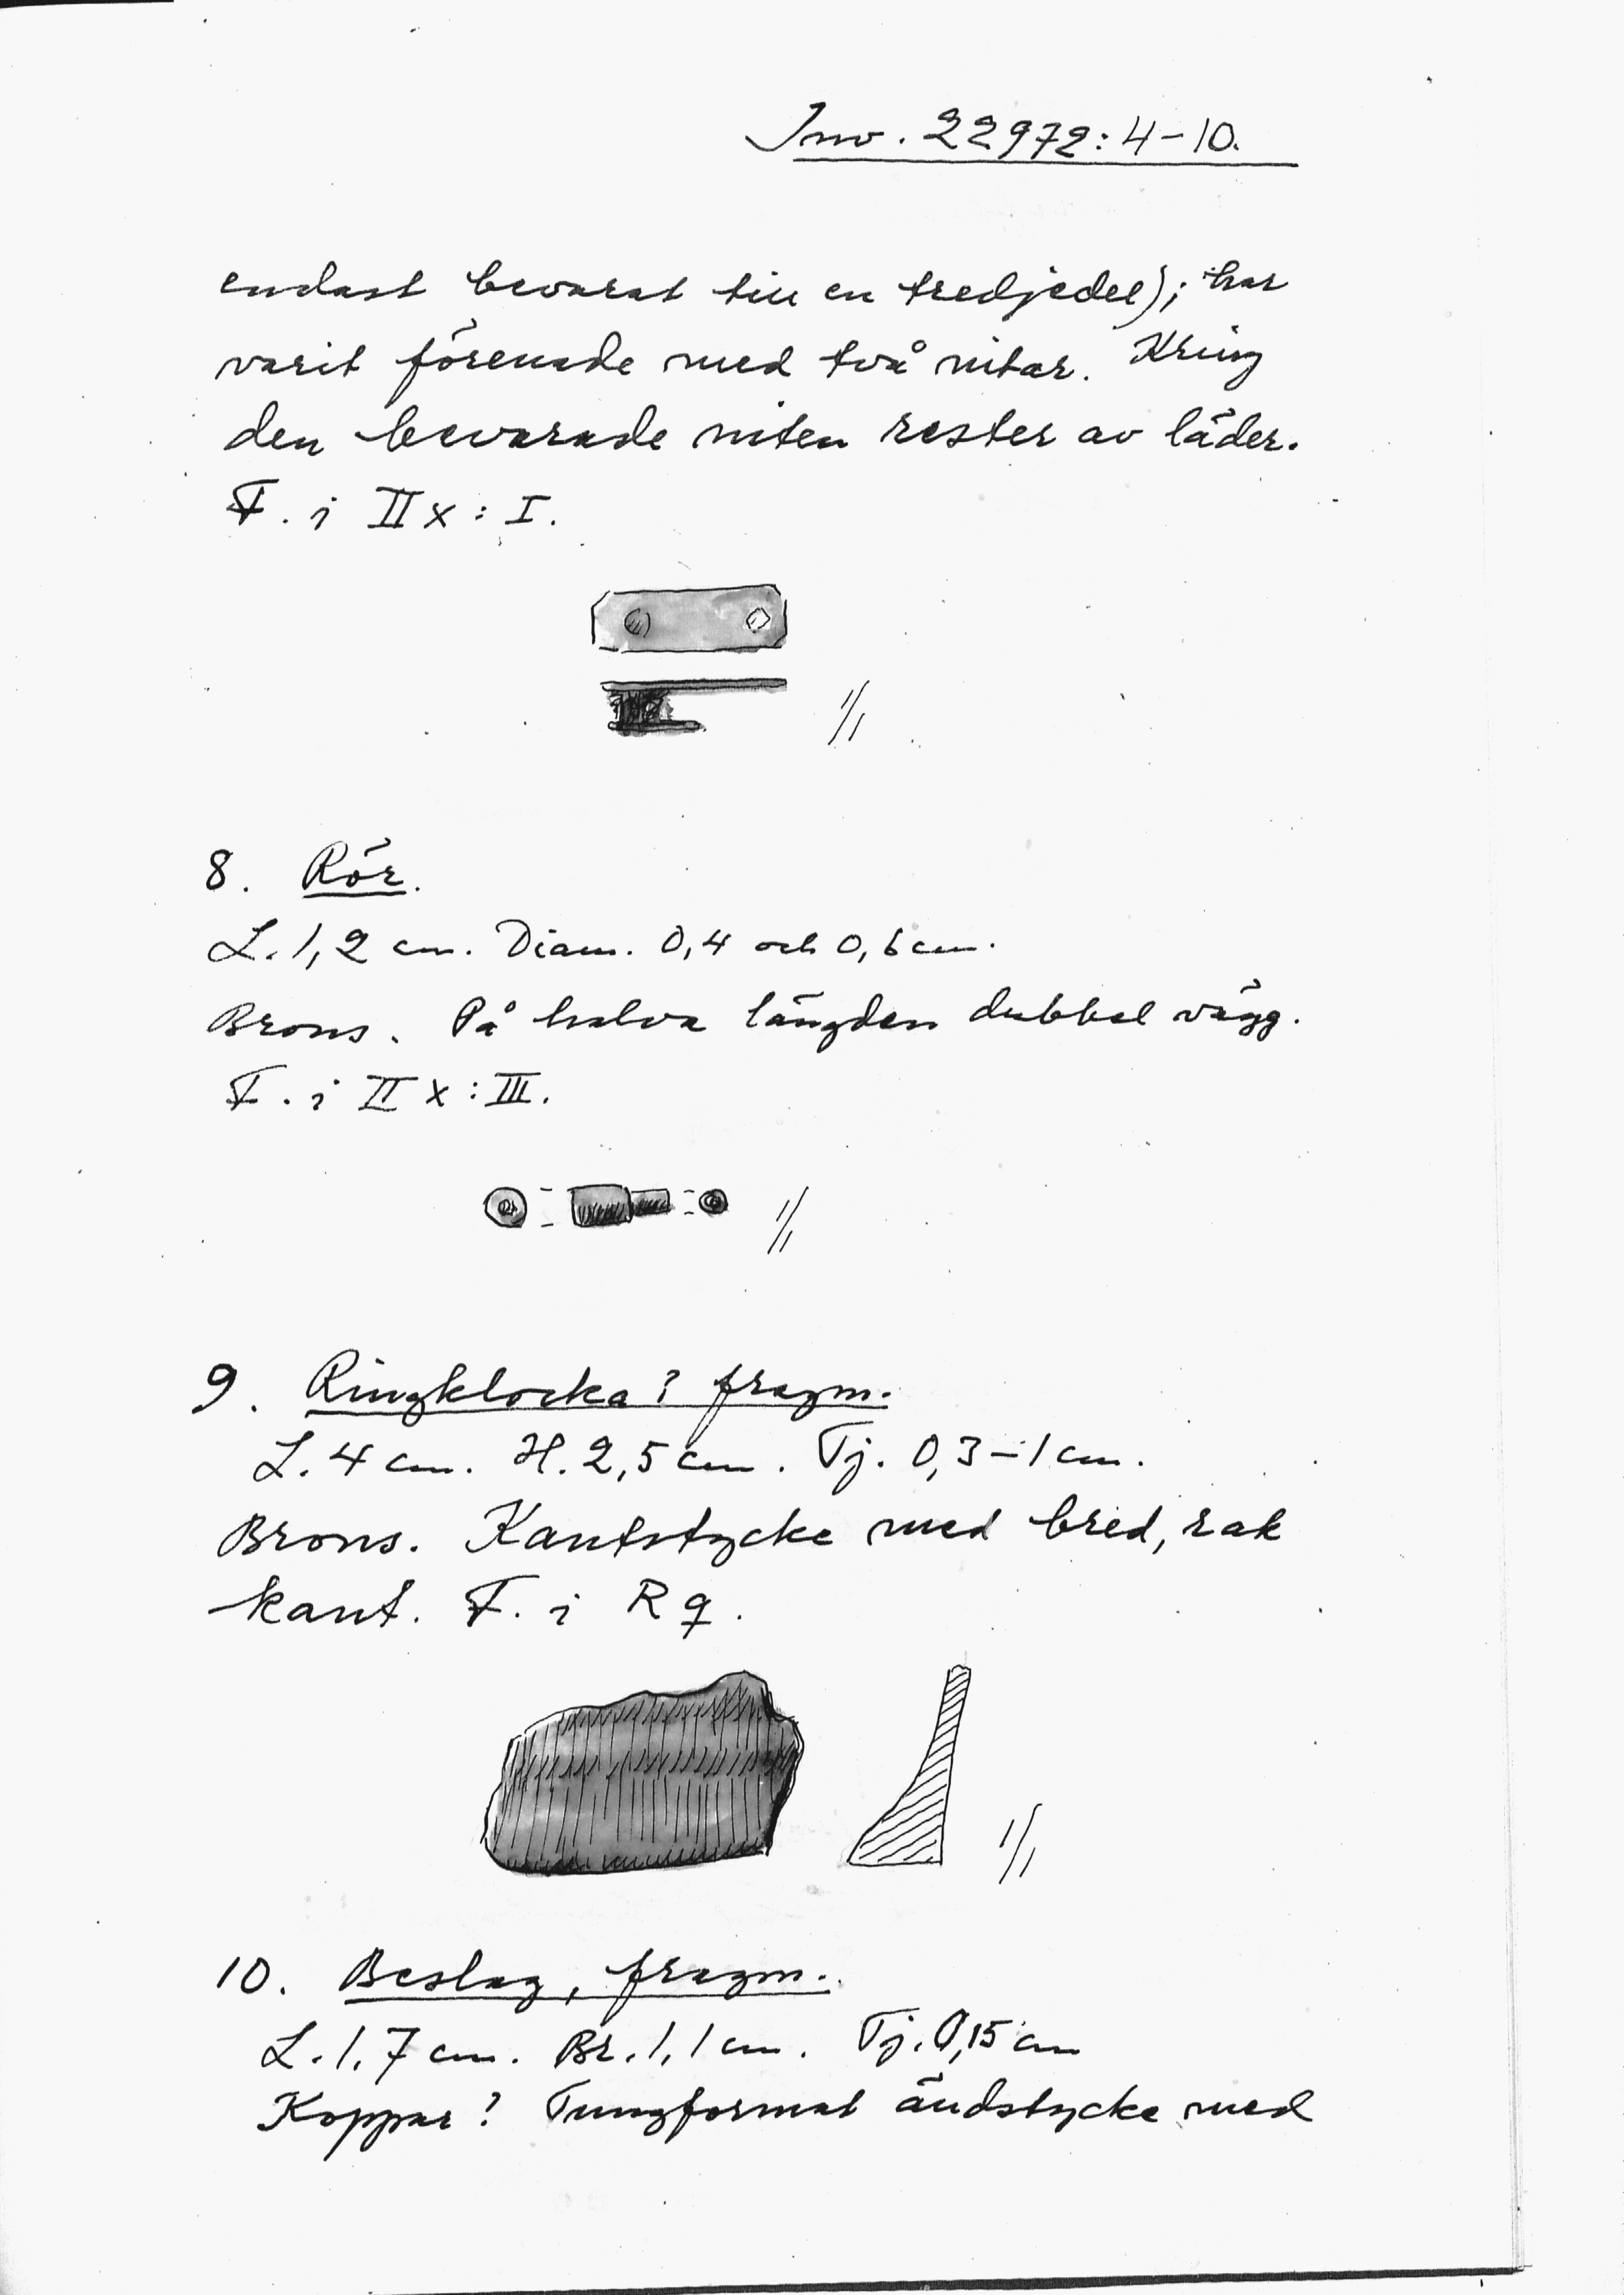 Inv. 22972:4-10.
endast bevarat till en tredjedel); har
varit förenade med två nitar. Kring
den bevarade niten rester av läder.
F. i II x : I.
1/1
8. Rör.
L. 1,2 cm. Diam. 0,4 och 0,6 cm.
Brons. På halva längden dubbel vägg.
F. i II x : III.
1/1
9. Ringklocka? fragm.
L. 4 cm. H. 2,5 cm. Tj. 0,3-1 cm.
Brons. Kantstycke med bred, rak
kant. F. i R q.
1/1
10. Beslag, fragm.
L. 1,7 cm. Br. 1,1 cm. Tj. 0,15 cm
Koppar? Tungformat ändstycke med